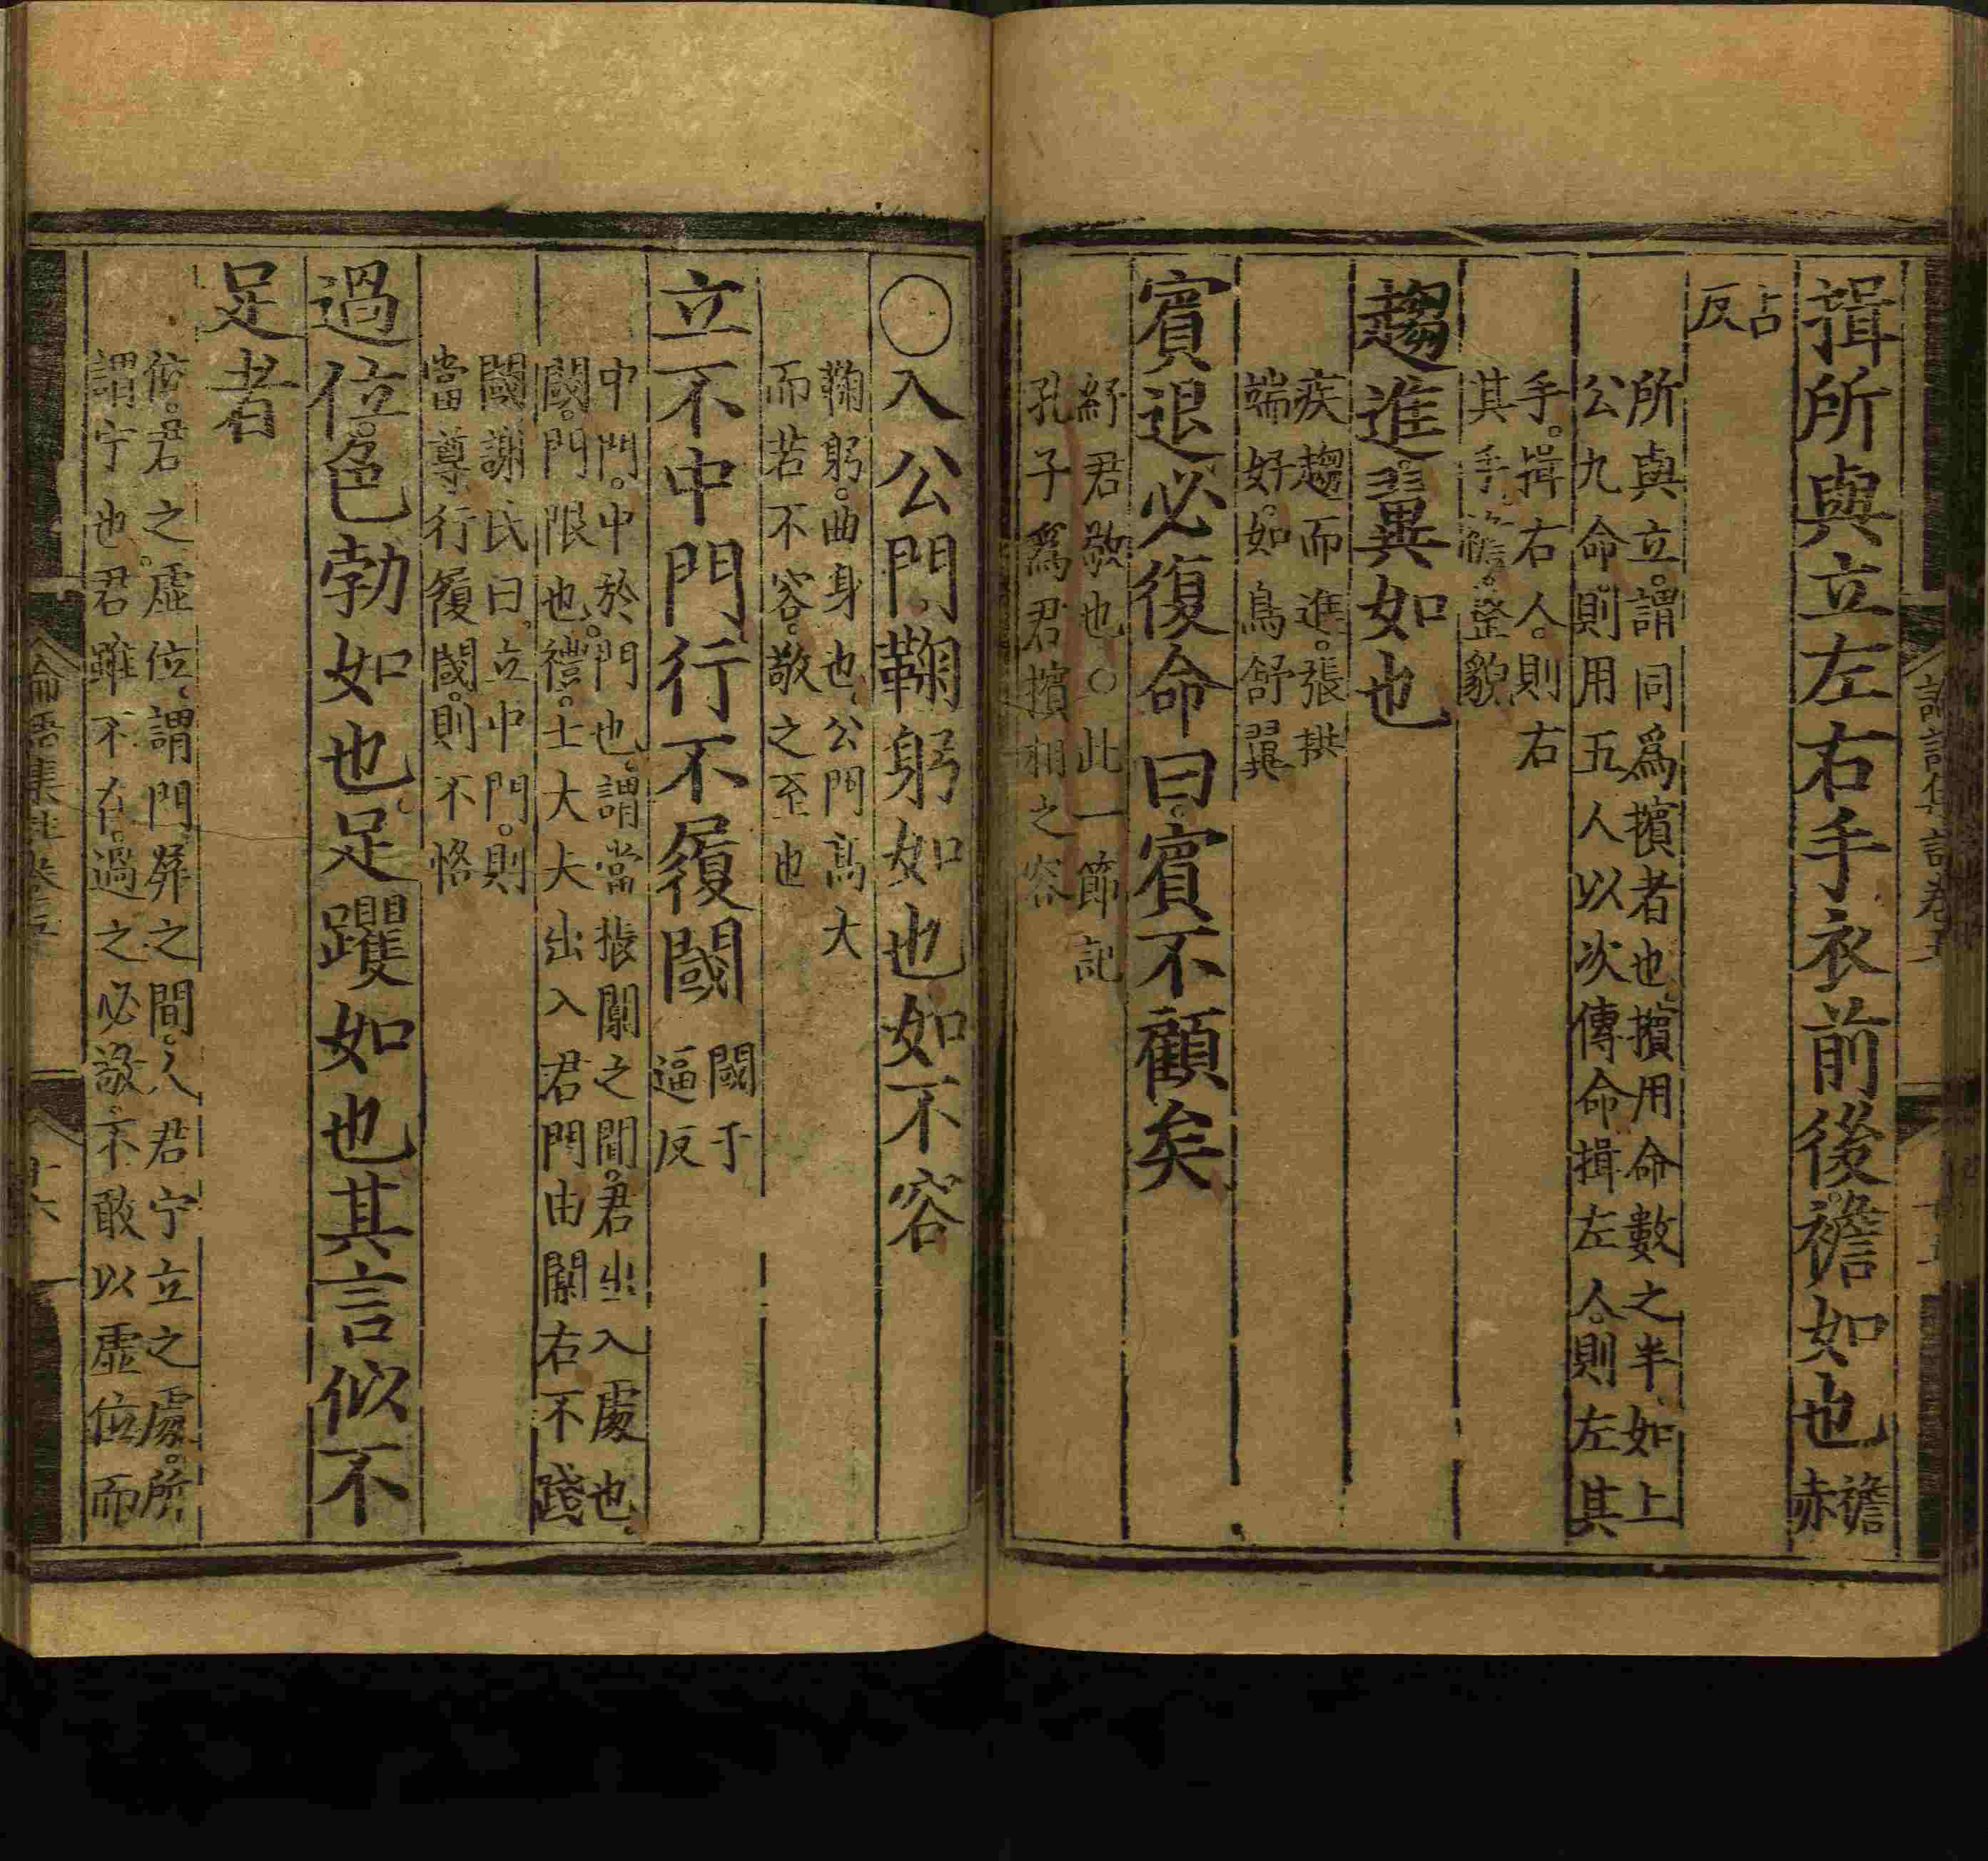 揖所與立左右手衣前後襜如也襜赤
占反
所與立謂同爲擯者也擯用命數之半如上
公九命則用五人以次傳命揖左人則左其
手揖右人則右
其手襜整貌
趨進翼如也
疾趨而進張拱
端好如鳥舒翼
賓退必復命曰賓不顧矣
紓君敬也○此一節記
孔子爲君擯相之容
○入公門鞠躬如也如不容
鞠躬曲身也公門高大
而若不容敬之至也
立不中門行不履閾閾于逼反
中門中於門也謂當棖闑之間君出入處也
閾門限也禮士大夫出入君門由闑右不踐
閾謝氏曰立中門則
當尊行履閾則不恪
過位色勃如也足躩如也其言似不
足者
位君之虛位謂門屛之間人君宁立之處所
謂宁也君雖不在過之必敬不敢以虛位而
論語集註卷五
十六